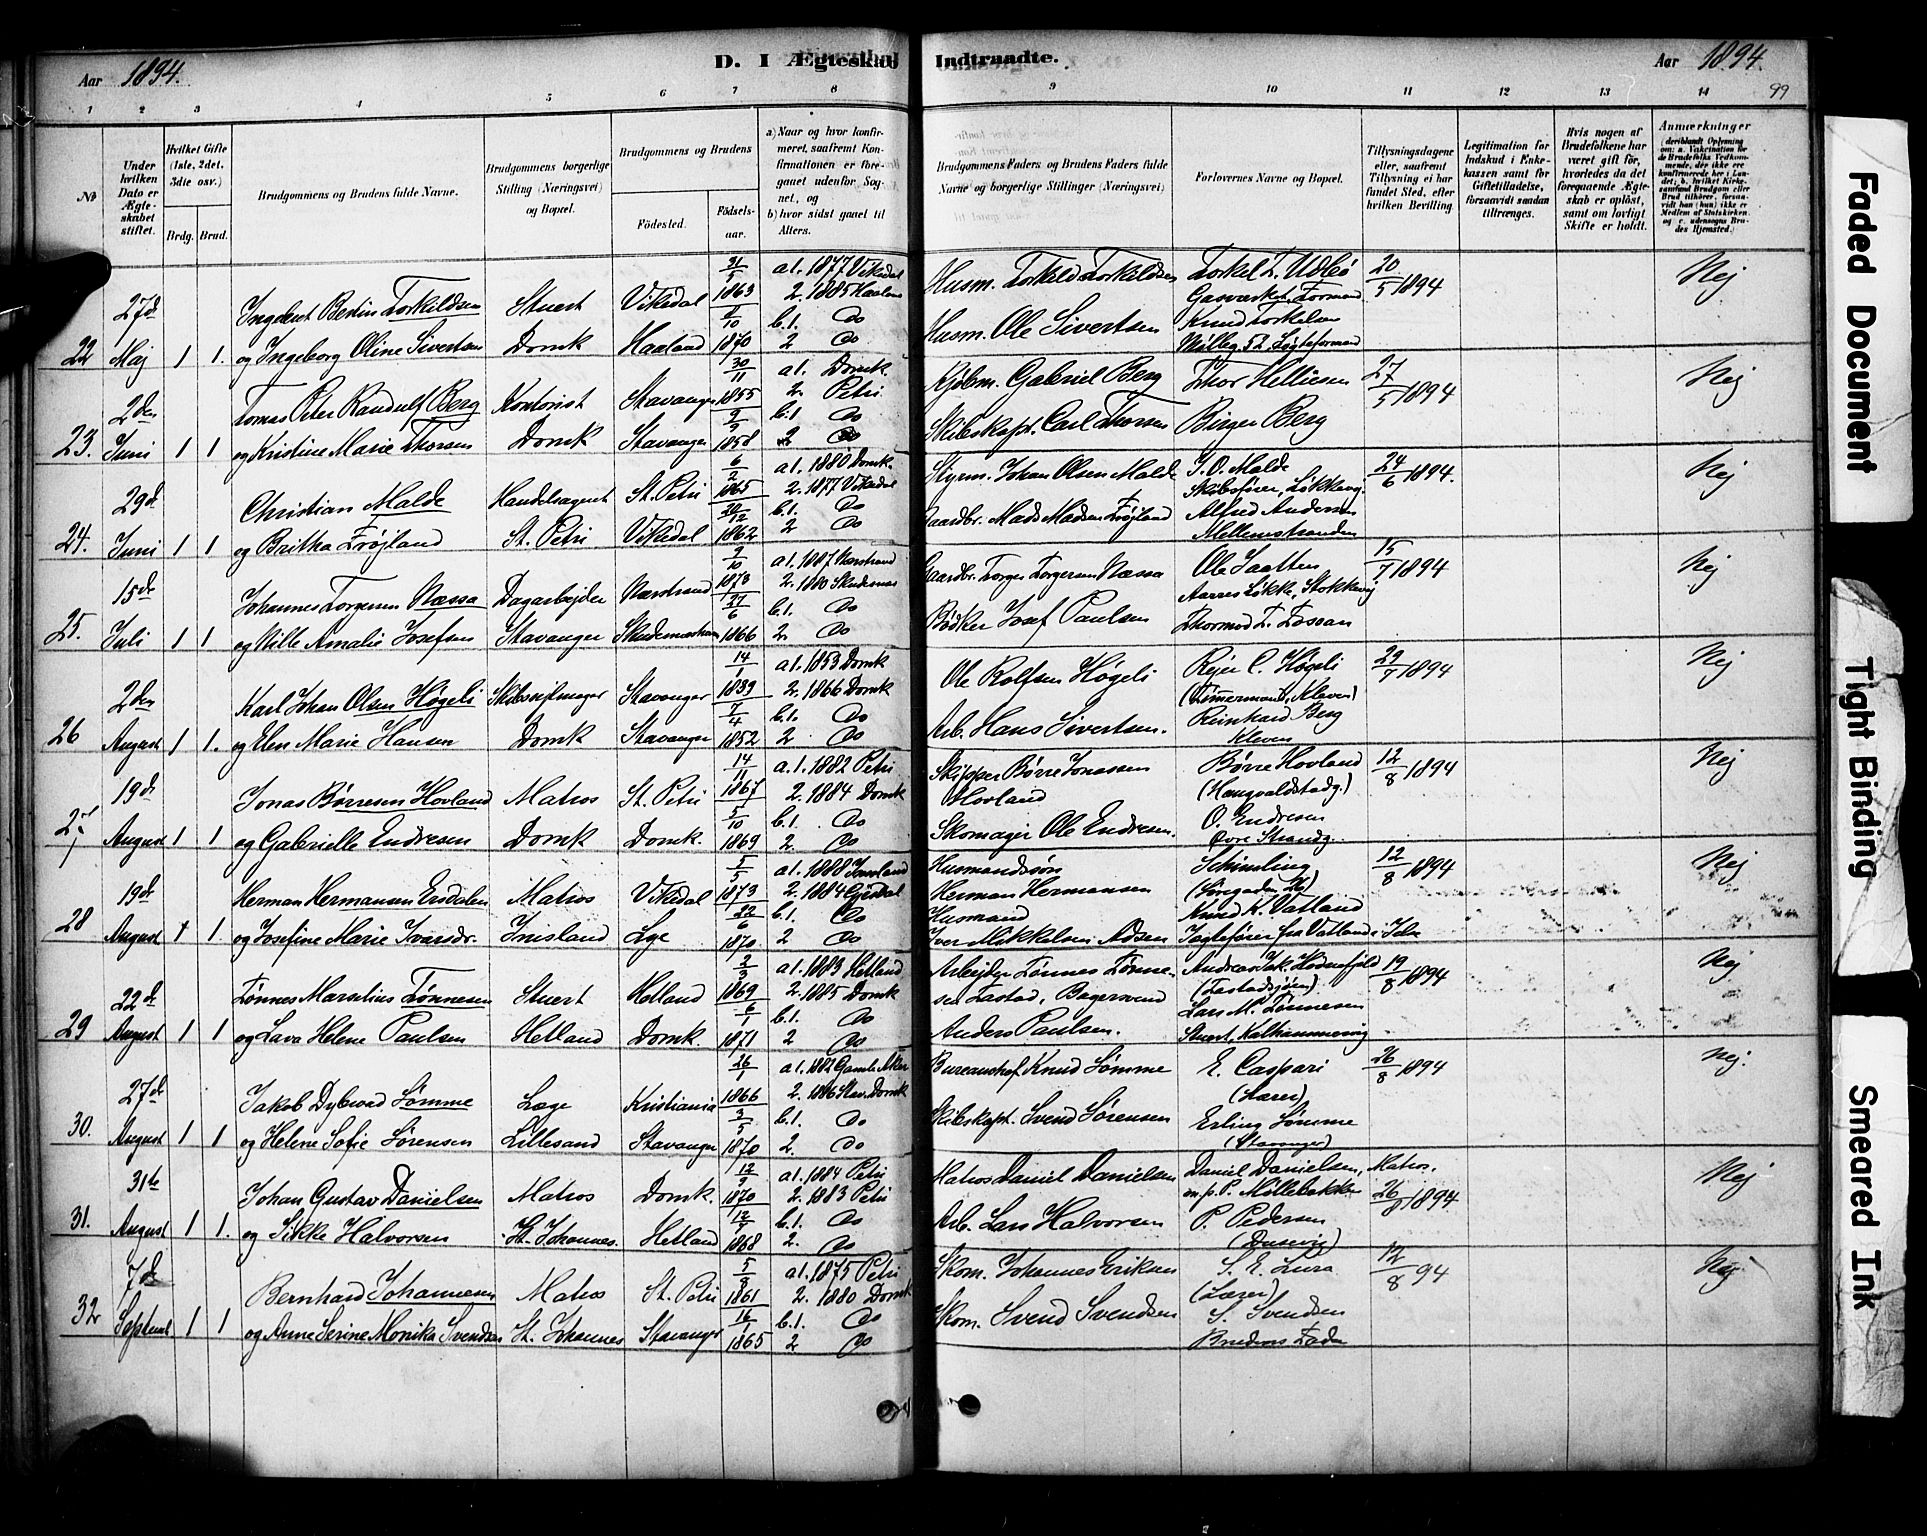 Aar 1894. D. I Ægteskab Indtraadte. Aar 1894.
99
1 2 3 4 5 6 7 8 9 10 11 12 13 14
No
Under hvilken Dato er Ægteskabet stiftet.
Hvilket Gifte (1ste, 2det, 3die osv.)
Brdg. Brud.
Brudgommens og Brudens fulde Navne.
Brudgommens borgerlige Stilling (Næringsvei) og Bopæl.
Brudgommens og Brudens
Fødested. Fødselsaar.
a) Naar og hvor konfirmeret, saafremt Konfirmationen er foregaaet udenfor Sognet, og
b) hvor sidst gaaet til Alters.
Brudgommens Faders og Brudens Faders fulde Navne og borgerlige Stillinger (Næringsvei)
Forlovernes Navne og Bopæl.
Tillysningsdagene eller, saafremt Tillysning ei har fundet Sted, efter hvilken Bevilling.
Legitimation for Indskud i Enkekassen samt for Giftetilladelse, forsaavidt saadan tiltrænges.
Hvis nogen af Brudefolkene har været gift før, hvorledes da det foregaaende Ægteskab er opløst, samt om lovligt Skifte er holdt.
Anmærkninger
22 27d Maj 1 1.
Ingebret Bertin Torkildsen
og Ingeborg Oline Sivertsen
Stuert Domk
Vikedal 31/5 1863
Haaland 1870
a1. 1877 Vikedal
2. 1885 Haaland
b.1. Do
2 Do
Husm. Torkild Torkildsen
Husm. Ole Sivertsen
Knud Torkelsen
20/5 1894
Nej
23. 2den Juni 1 1
Tomas Peter Randulf Berg
og Kristine Marie Thorsen
Kontorist Domk
Stavanger 30/11 1855
Stavanger 9/9 1858
a1. Domk.
2. Petri
b.1. Do
2 Do
Kjøbm. Gabriel Berg
Skibskapt. Carl Thorsen
Thor Helliesen
Birger Berg
27/5 1894
Nej
24. 29d Juni 1 1
Christian Malde
og Britha Trøjland
Handelsagent St. Petri
St. Petri 6/2 1865
Vikedal 1862
a1. 1880 Domk.
2. 1877 Vikedal
b.1. Do
2 Do
Styrm. Johan Olsen Malde
Gaardbr. Mads Madsen Trøjland
J. O. Malde
Skibsfører, Løkkevej.
Alfred Andersen
Mellemstranden
24/6 1894.
Nej
25. 15de Juli 1 1
Johannes Torgersen Næssa
og Nille Amalie Josefsen
Dagarbejder Stavanger
Nærstrand 9/10 1873
27/6 1866
a1. 1887 Nærstrand
2. 1880 Skudesnæs
b.1. Do
2. Do
Gaardbr. Torger Torgersen Næssa
Bødker Josef Paulsen
Ole Saatten
Aarres Løkke, Stokkavej
15/7 1894
Nej
26 2den August 1 1.
Karl Johan Olsen Høgeli
og Elen Marie Hansen
Skibssejlmager Domk
Stavanger 14/1 1839
Stavanger 7/4 1852
a1. 1853 Domk
2. 1866 Domk
b.1. Do
2 Do
Ole Rolfsen Høgeli
Arb. Hans Sivertsen.
Rejer C. Høgeli
(Tømmermand, Kleven)
Reinhard Berg
Kleven
29/7 1894
Nej
27 19d August 1 1
Jonas Børresen Hovland
og Gabrielle Endresen
Matros Domk
St. Petri 14/11 1867
Domk. 5/10 1869
a.1. 1882 Petri
2. 1884 Domk
b.1. Do
2. Do
Skipper Børre Jonassen Hovland
Skomager Ole Endresen.
Børre Hovland
O. Endresen
Øvre Strandg.
12/8 1894
Nej
28 19d August 1 1.
Herman Hermansen Ersdalen
og Josefine Marie Ivarsdr.
Matros
Vikedal 5/5 1873
Lye 22/6 1870
a1. 1888
2. 1884 Gjesdal
b.1. Do
2 Do
Husmandssøn
Herman Hermansen
Husmand
Iver Mikkelsen
Schimling
Knud K. Vatland
Jagtefører fra Vatland i Jelse
12/8 1894
Nej
29 22d August 1 1
Tønnes Marselius Tønnesen
og Lava Helene Paulsen
Stuert Hetland
Hetland 2/3 1869
Domk. 6/1 1871
a1. 1883 Hetland
2. 1885 Domk
b.1. Do
2 Do
Arbejder Tønnes Tønnesen Tastad, Bagersvend
Anders Paulsen.
Andreas Jak. Hodnefjeld
(Tastadsjøen)
Lars M. Tønnesen
Stuert, Kalhammervig
19/8 1894
Nej
30. 27d August 1 1
Jakob Dybwad Sømme
og Helene Sofie Sørensen
Læge Lillesand
Kristiania 26/1 1866
Stavanger 3/5 1870
a1. 1882 Gamle Aker
2. 1886 Stav. Domk
b.1. Do
2. Do
Bureauchef Knud Sømme
Skibskapt. Svend Sørensen
E. Caspari
(Lærer)
Erling Sømme
(Stavanger)
26/8 1894
Nej.
31. 31te August 1 1.
Johan Gustav Danielsen
og Sikke Halvorsen
Matros St. Johannes.
Domk. 12/9 1870
Hetland 1868
a1. 1884 Petri
2. 1883 Petri
b.1. Do
2. Do
Matros Daniel Danielsen
Arb. Lars Halvorsen
Daniel Danielsen, Matros.
P. Pedersen
(Dusevig)
26/8 1894
Nej
32 7d Septembr 1 1
Bernhard Johannesen
og Anne Serine Monika Svendsen
Matros St. Johannes
St. Petri 5/8 1861
Stavanger 16/1 1865
a1. 1875 Petri
2. 1880 Domk
b.1. Do
2 Do
Skom. Johannes Eriksen
Skom. Svend Svendsen
S. E. Lura
(Lærer)
S. Svendsen
Brudens Fader
12/8 94
Nej
Faded Document
Tight Binding
Smeared Ink